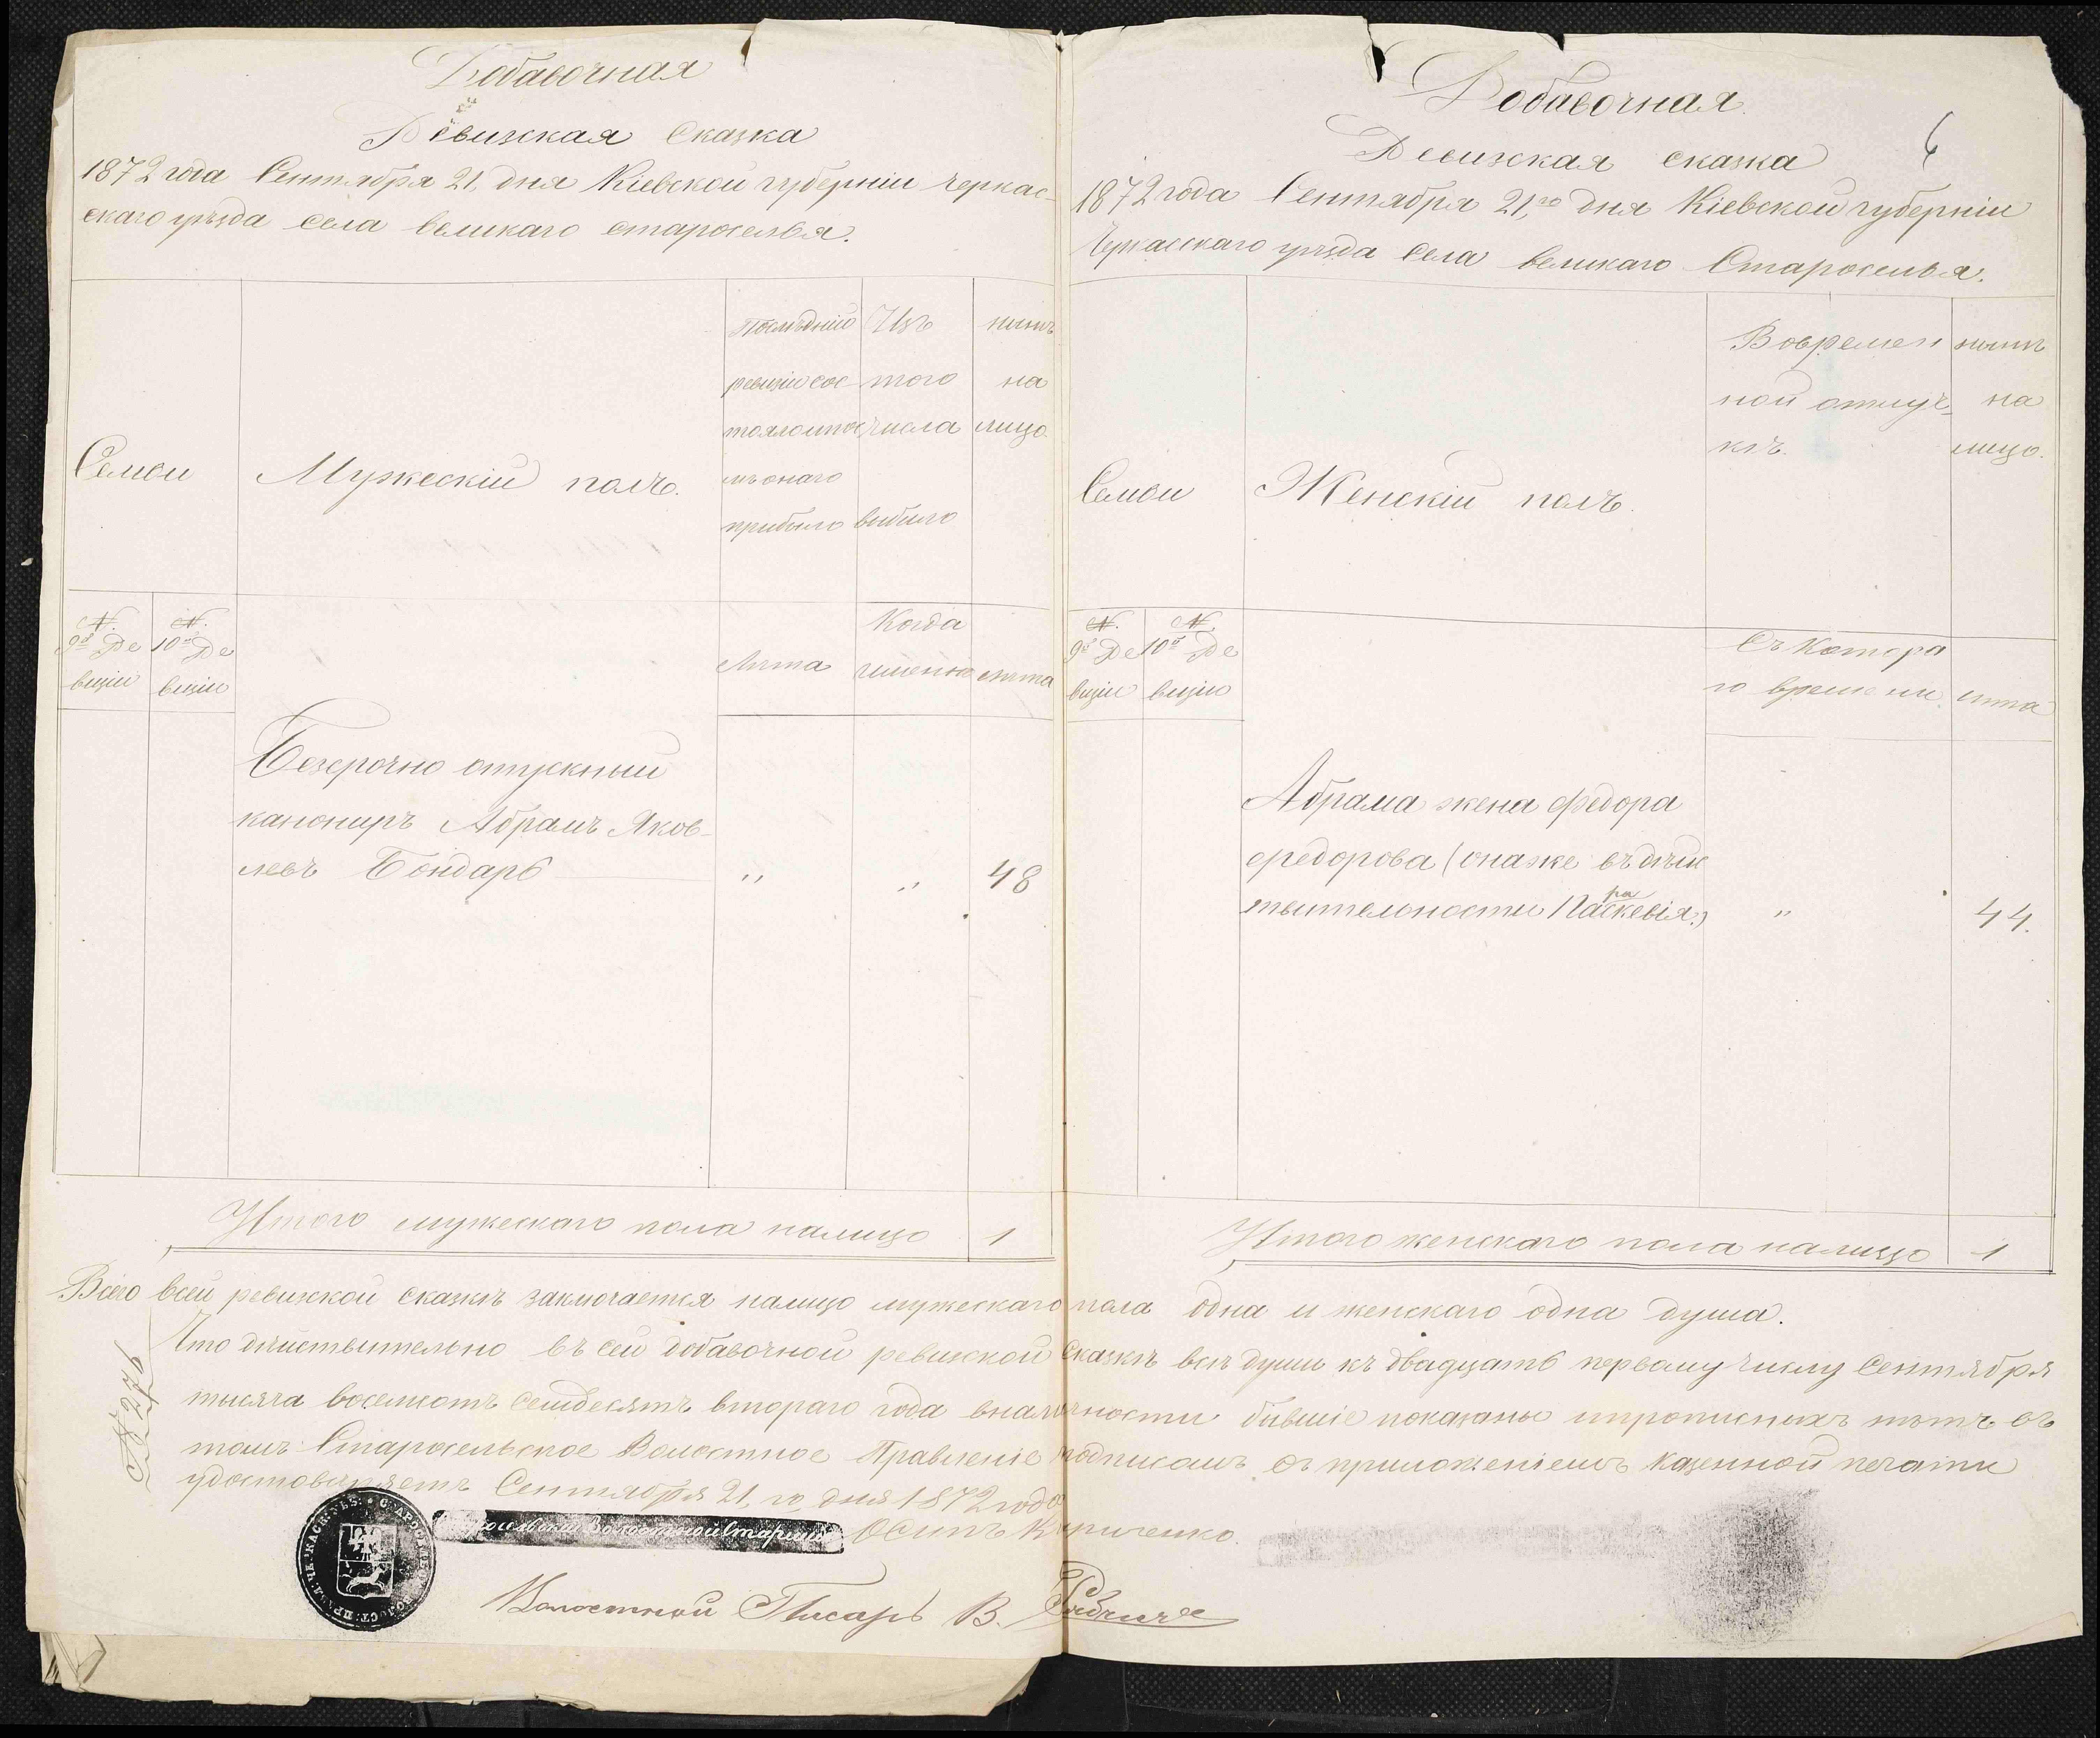 Добавочная
Ревизская Сказка
1872 года Сентября 21 дня Кіевской губерніи Черкас-
скаго уѣзда села великаго староселья.
Семьи
Мужескій полъ.
Послѣдній
ревизіи сос-
тояло и пос-
лѣ онаго
прибыло
Изъ
того
числа
выбыло
нынѣ
на
лицо
№.
9й Ре
визіи
№.
10й Ре
визіи
Лѣта
Когда
именно
лѣта
Безсрочно отпускный
канониръ Абрамъ Яков-
левъ Бондарь " " 48
Итого мужескаго пола налицо 1
Добавочная.
6
Ревизская сказка
1872 года Сентября 21,го дня Кіевской губерніи
Черкасскаго уѣзда Села великаго Староселья.
Семьи
Женскій полъ.
Вовремен
ной отлуч-
кѣ.
нынѣ
на
лицо.
№.
9й Ре
визіи
№.
10й Ре
визіи
Съ Котора
го времени.
лѣта
Абрама жена Федора
Федорова (она же въ дѣйс
ра
твительности Паскевія.) " 44.
Итого женскаго пола налицо 1
Всего всей ревизской сказкѣ заключается налицо мужескаго пола одна и женскаго одна душа.
Что дѣйствительно въ сей добавочной ревизской Сказкѣ всѣ души къ двадцать первому числу Сентября
тысяча восемсотъ семдесятъ втораго года вналичности бывшіе показаны и прописныхъ нѣтъ въ
томъ Старосельское Волостное Правленіе подписомъ съ приложеніемъ казенной печати
удостовѣряетъ Сентября 21,го дня 1872 года
№ 276
Старосельскій Волостной Старшина Осипъ Кириченко.
Волостной Писарь В.